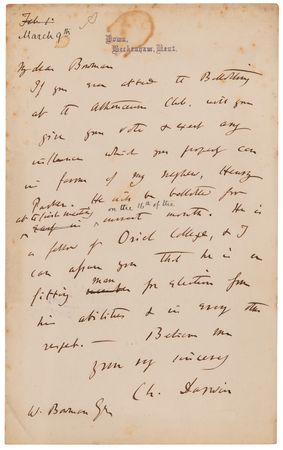 March 9th
Down,
Beckenham, Kent.
My dear Bowman
If you ever attend the Balloting
at the Athenæum Club, will you
give your vote & exert any
influence which you properly can
in favour of my nephew, Henry
Parker. He will be balloted for
on the 16th of the
current month. He is
a fellow of Oriel College, & I
can assure you that he is a
man
fitting for election from
his abilities & in every other
respect. — Believe me
yours very sincerely
Ch. Darwin
W. Bowman Esq